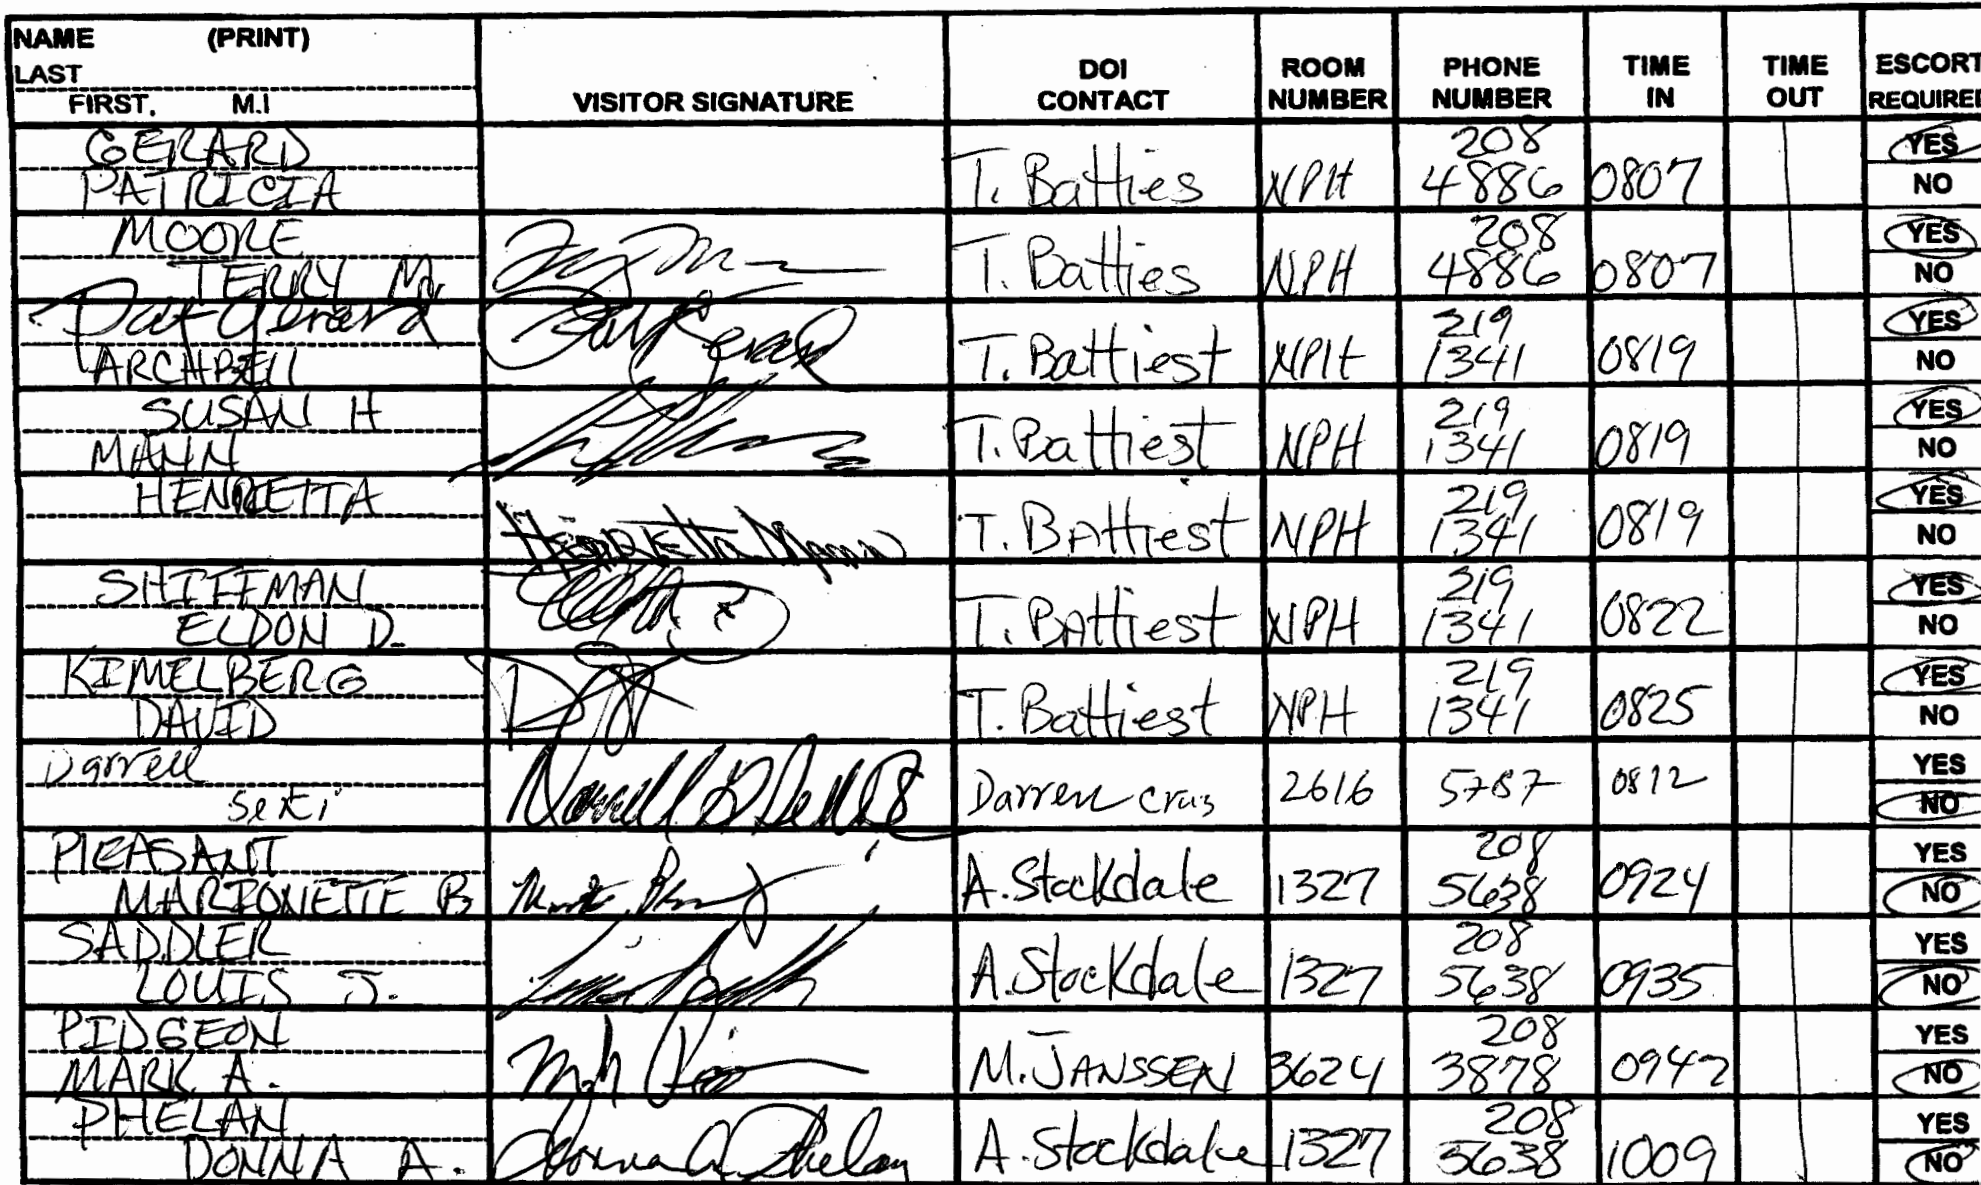 NAME (PRINT)
LAST
FIRST, M.I
VISITOR SIGNATURE
DOI CONTACT
ROOM NUMBER
PHONE NUMBER
TIME IN
TIME OUT
ESCORT REQUIRED
GERARD
PATRICIA
T. Batties NPH 208 4886 0807 YES NO
MOORE
TERRY M.
T. Batties NPH 208 4886 0807 YES NO
Pat Gerard
ARCHBELL
Pat Gerard
T. Battiest NPH 219 1341 0819 YES NO
SUSAN H
MANN
T. Battiest NPH 219 1341 0819 YES NO
HENRIETTA
Henrietta Mann
T. BAttiest NPH 219 1341 0819 YES NO
SHIFFMAN
ELDON D.
T. BAttiest NPH 219 1341 0822 YES NO
KIMELBERG
DAVID
T. Battiest NPH 219 1341 0825 YES NO
Darrell
Darren Cruz 2616 5787 0812 YES NO
PLEASANT
MARIONETTE B
A. Stockdale 1327 208 5638 0924 YES NO
SADDLER
LOUIS J.
A. Stockdale 1327 208 5638 0935 YES NO
PIDGEON
MARK A.
M. JANSSEN 3624 208 3878 0942 YES NO
PHELAN
DONNA A.
Donna A Phelan
A. Stockdale 1327 208 5638 1009 YES NO